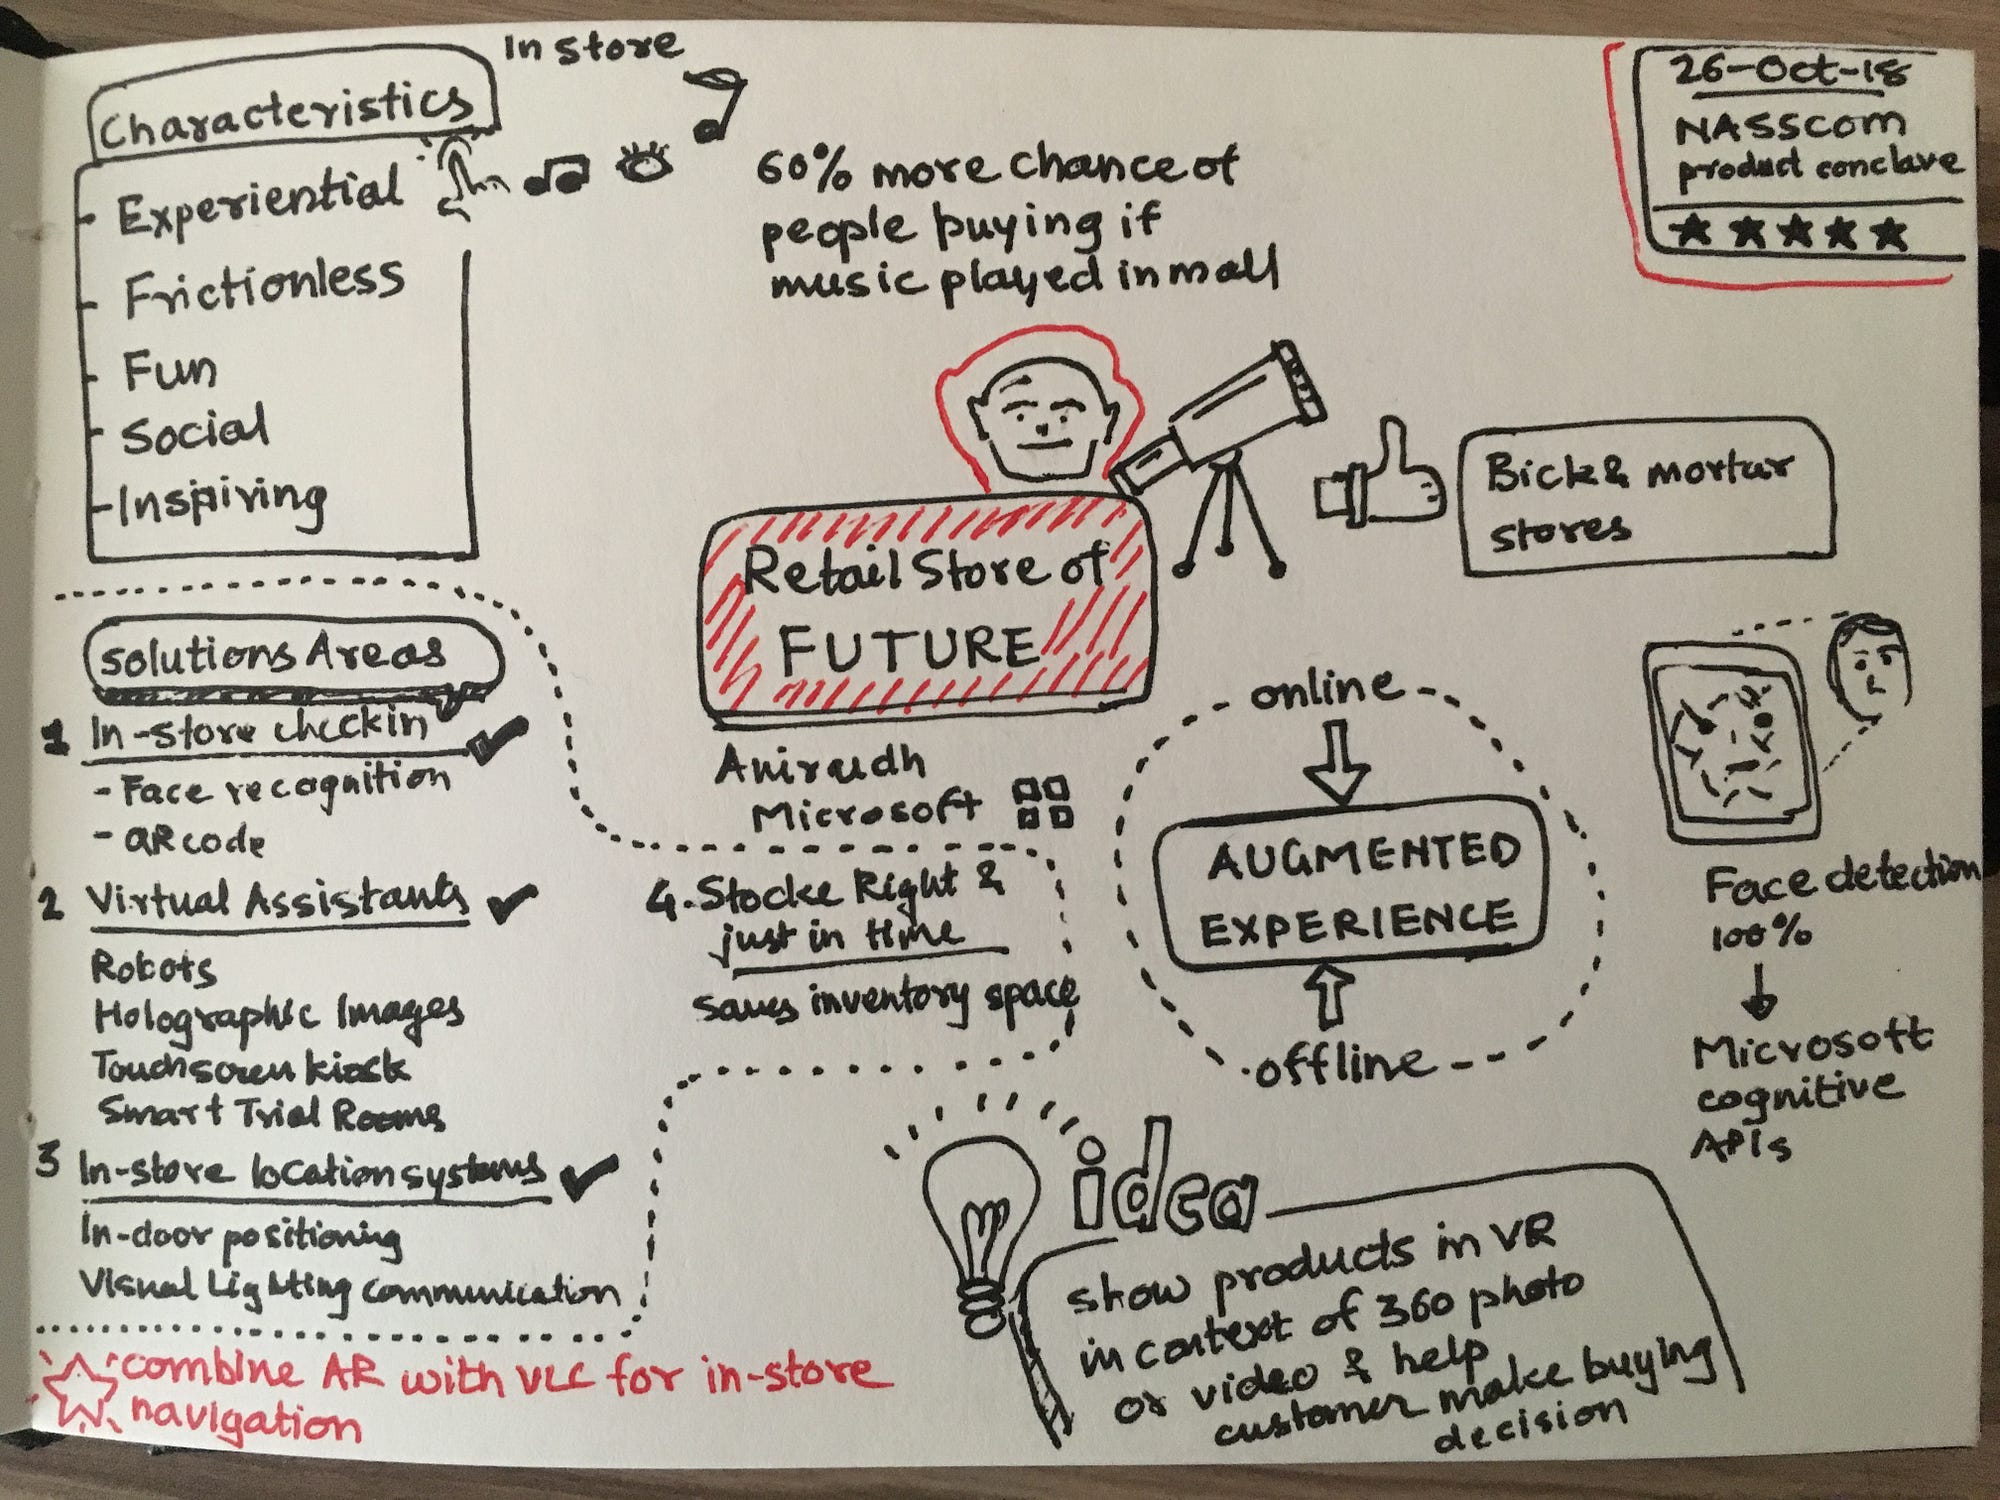 In store
Characteristics
- Experiential
- Frictionless
- Fun
- Social
- Inspiring
60% more chance of
people buying if
music played in mall
26-Oct-18
NASSCOM
product conclave
Retail Store of
FUTURE
Anirudh
Microsoft
Bick & mortar
stores
Solutions Areas
1 In-store checkin
- Face recognition
- QR code
2 Virtual Assistants
Robots
Holographic Images
Touchscreen kiosk
Smart Trial Rooms
3 In-store location systems
In-door positioning
Visual Lighting communication
4. Stocke Right &
just in time
saves inventory space
online
AUGMENTED
EXPERIENCE
offline
Face detection
100%
Microsoft
cognitive
APIs
idea
show products in VR
in context of 360 photo
or video & help
customer make buying
decision
combine AR with VLC for in-store
navigation